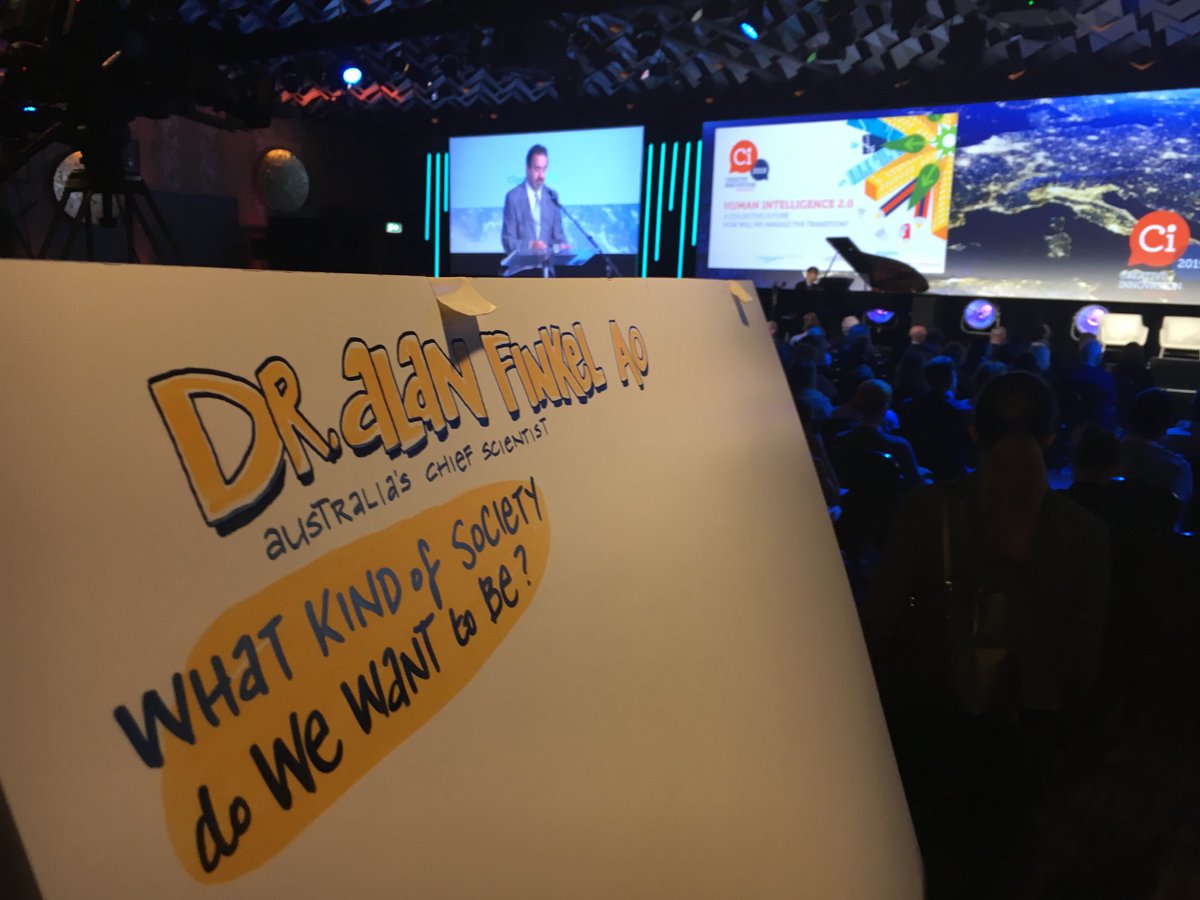 DR. ALAN FINKEL AO
AUSTRALIA'S CHIEF SCIENTIST
WHAT KIND of SOCIETY
do WE WANT to BE?
Ci
2019
CREATIVE
INNOVATION
HUMAN INTELLIGENCE 2.0
A COLLECTIVE FUTURE
HOW WILL WE MANAGE THE TRANSITION?
Ci
2019
CREATIVE
INNOVATION